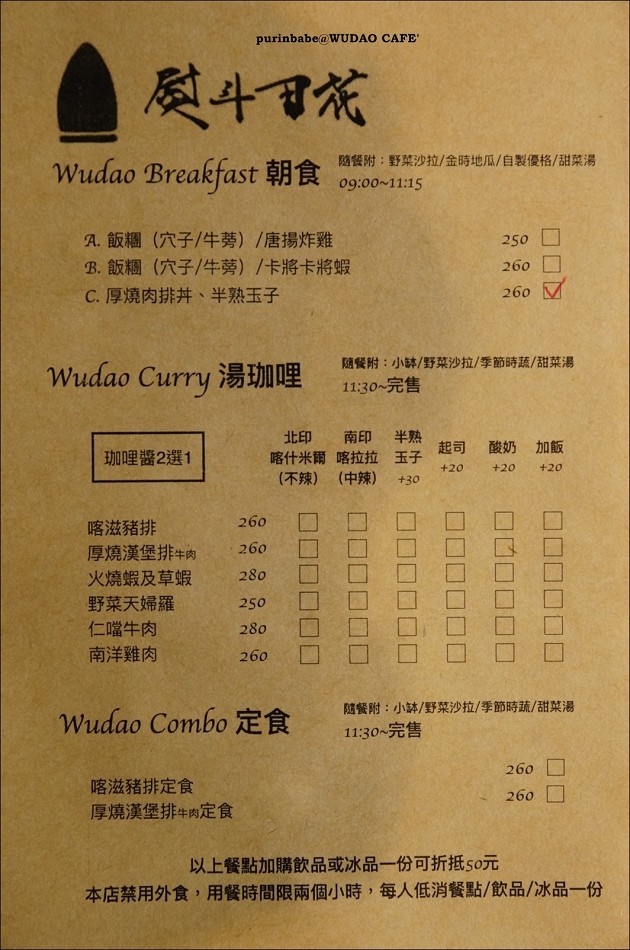 purinbabe@WUDAO CAFE'
熨斗日花
Wudao Breakfast 朝食
隨餐附：野菜沙拉/金時地瓜/自製優格/甜菜湯
09:00~11:15
A. 飯糰（穴子/牛蒡）/唐揚炸雞 250
B. 飯糰（穴子/牛蒡）/卡將卡將蝦 260
C. 厚燒肉排丼、半熟玉子 260
Wudao Curry 湯珈哩
隨餐附：小缽/野菜沙拉/季節時蔬/甜菜湯
11:30~完售
珈哩醬2選1
北印 喀什米爾 （不辣）
南印 喀拉拉 （中辣）
半熟 玉子 +30
起司 +20
酸奶 +20
加飯 +20
喀滋豬排 260
厚燒漢堡排牛肉 260
火燒蝦及草蝦 280
野菜天婦羅 250
仁噹牛肉 280
南洋雞肉 260
Wudao Combo 定食
隨餐附：小缽/野菜沙拉/季節時蔬/甜菜湯
11:30~完售
喀滋豬排定食 260
厚燒漢堡排牛肉定食 260
以上餐點加購飲品或冰品一份可折抵50元
本店禁用外食，用餐時間限兩個小時，每人低消餐點/飲品/冰品一份